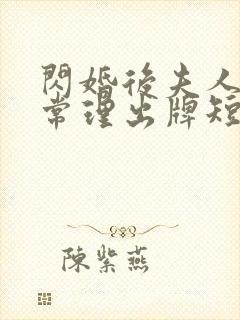 閃婚後夫人
常理出牌短
陳紫燕